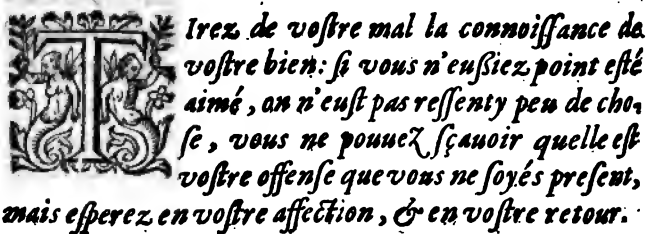 TIrez de voſtre mal la connoiſſance de
voſtre bien: ſi vous n'euſſiez point eſté
aimé, on n'euſt pas reſſenty peu de cho-
ſe, vous ne pouuez ſçauoir quelle eſt
voſtre offenſe que vous ne ſoyés preſent,
mais eſperez en voſtre affection, & en voſtre retour.